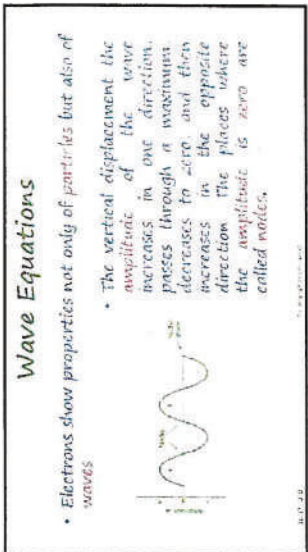 Wave Equations
• Electrons show properties not only of particles but also of
waves
• The vertical displacement the
amplitude of the wave
increases in one direction,
passes through a maximum,
decreases to zero, and then
increases in the opposite
direction. The places where
the amplitude is zero are
called nodes.